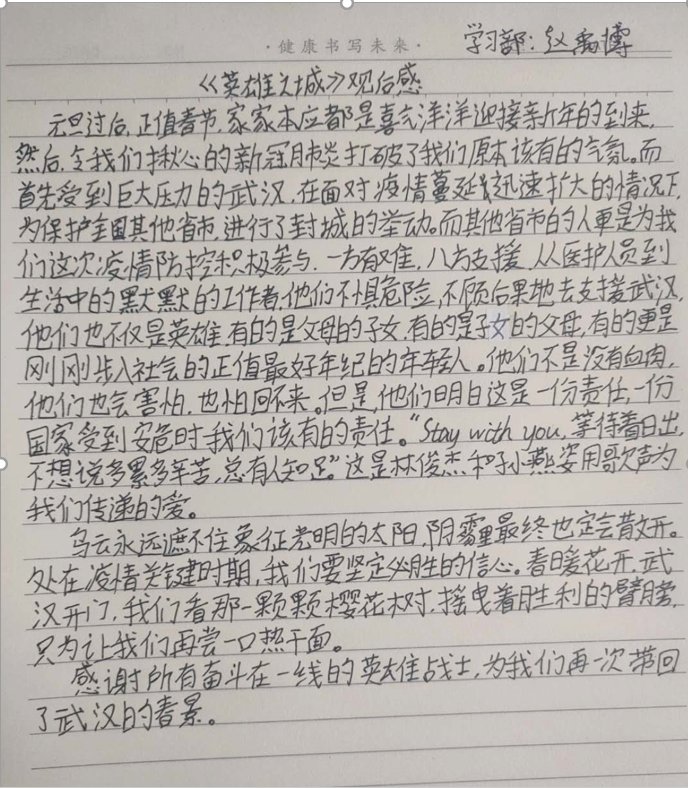 ·健康书写未来·
学习部：赵禹博
《英雄之城》观后感
元旦过后，正值春节，家家本应都是喜气洋洋迎接新年的到来，
然后，令我们揪心的新冠肺炎打破了我们原本该有的气氛。而
首先受到巨大压力的武汉，在面对疫情蔓延迅速扩大的情况下，
为保护全国其他省市，进行了封城的举动。而其他省市的人更是为我
们这次疫情防控积极参与，一方有难，八方支援，从医护人员到
生活中的默默的工作者，他们不惧危险，不顾后果地去支援武汉，
他们也不仅是英雄，有的是父母的子女，有的是子女的父母，有的更是
刚刚步入社会的正值最好年纪的年轻人。他们不是没有血肉，
他们也会害怕，也怕回不来。但是，他们明白这是一份责任，一份
国家受到安危时我们该有的责任。“Stay with you，等待着日出，
不想说多累多辛苦，总有人知足。”这是林俊杰和孙燕姿用歌声为
我们传递的爱。
乌云永远遮不住象征光明的太阳，阴霾最终也定会散开。
处在疫情关键时期，我们要坚定必胜的信心。春暖花开，武
汉开门，我们看那一颗颗樱花树，摇曳着胜利的臂膀，
只为让我们再尝一口热干面。
感谢所有奋斗在一线的英雄战士，为我们再一次带回
了武汉的春景。